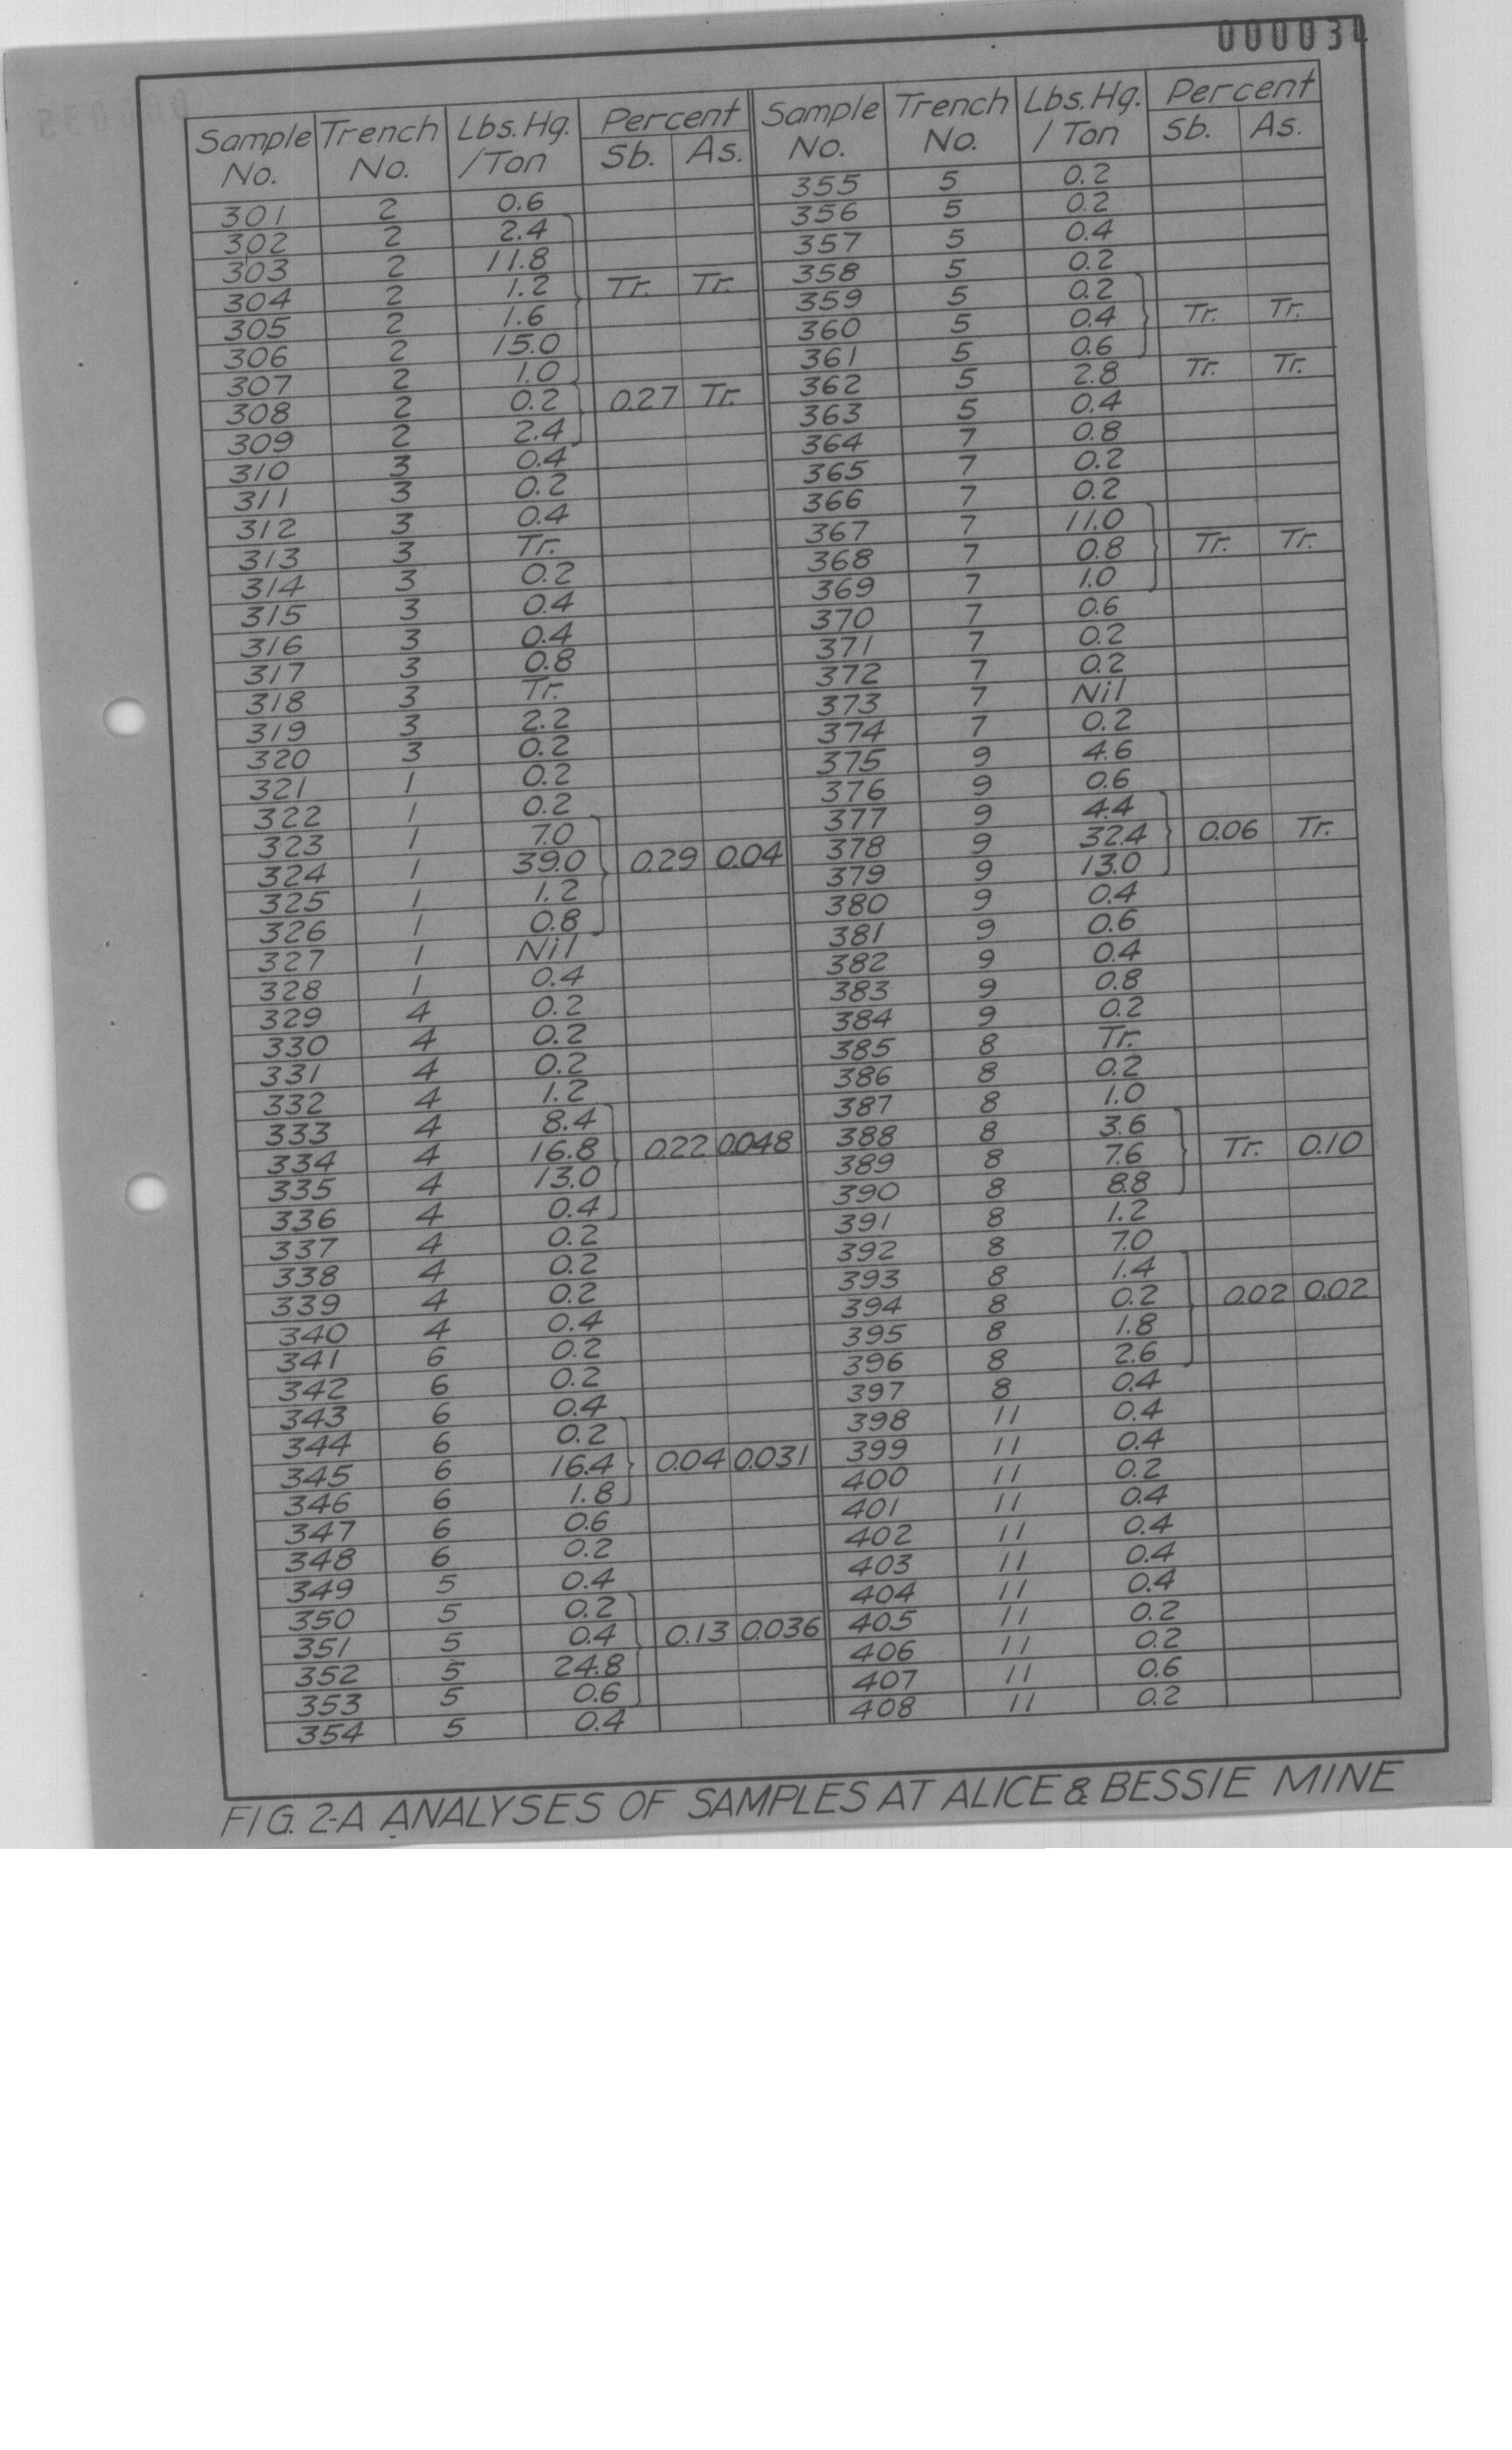 000034
Sample Trench Lbs. Hg. Percent Sample Trench Lbs. Hg. Percent
No. No. /Ton Sb. As. No. No. / Ton Sb. As.
301 2 0.6 355 5 0.2
302 2 2.4 356 5 0.2
303 2 11.8 357 5 0.4
304 2 1.2 Tr. Tr. 358 5 0.2
305 2 1.6 359 5 0.2
306 2 15.0 360 5 0.4 Tr. Tr.
307 2 1.0 361 5 0.6
308 2 0.2 0.27 Tr. 362 5 2.8 Tr. Tr.
309 2 2.4 363 5 0.4
310 3 0.4 364 7 0.8
311 3 0.2 365 7 0.2
312 3 0.4 366 7 0.2
313 3 Tr. 367 7 11.0
314 3 0.2 368 7 0.8 Tr. Tr.
315 3 0.4 369 7 1.0
316 3 0.4 370 7 0.6
317 3 0.8 371 7 0.2
318 3 Tr. 372 7 0.2
319 3 2.2 373 7 Nil
320 3 0.2 374 7 0.2
321 1 0.2 375 9 4.6
322 1 0.2 376 9 0.6
323 1 7.0 377 9 4.4
324 1 39.0 0.29 0.04 378 9 32.4 0.06 Tr.
325 1 1.2 379 9 13.0
326 1 0.8 380 9 0.4
327 1 Nil 381 9 0.6
328 1 0.4 382 9 0.4
329 4 0.2 383 9 0.8
330 4 0.2 384 9 0.2
331 4 0.2 385 8 Tr.
332 4 1.2 386 8 0.2
333 4 8.4 387 8 1.0
334 4 16.8 0.22 0.048 388 8 3.6
335 4 13.0 389 8 7.6 Tr. 0.10
336 4 0.4 390 8 8.8
337 4 0.2 391 8 1.2
338 4 0.2 392 8 7.0
339 4 0.2 393 8 1.4
340 4 0.4 394 8 0.2 0.02 0.02
341 6 0.2 395 8 1.8
342 6 0.2 396 8 2.6
343 6 0.4 397 8 0.4
344 6 0.2 398 11 0.4
345 6 16.4 0.04 0.031 399 11 0.4
346 6 1.8 400 11 0.2
347 6 0.6 401 11 0.4
348 6 0.2 402 11 0.4
349 5 0.4 403 11 0.4
350 5 0.2 404 11 0.4
351 5 0.4 0.13 0.036 405 11 0.2
352 5 24.8 406 11 0.2
353 5 0.6 407 11 0.6
354 5 0.4 408 11 0.2
FIG. 2-A ANALYSES OF SAMPLES AT ALICE & BESSIE MINE